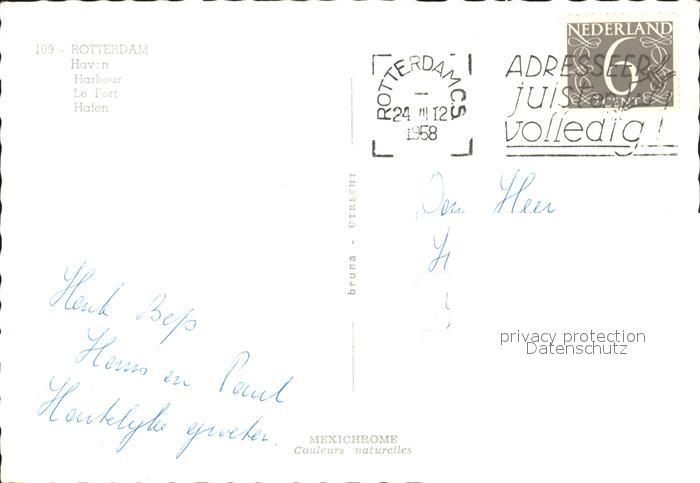 109 - ROTTERDAM
Haven
Harbour
Le Port
Hafen
ROTTERDAM C.S
24 III 12
1958
ADRESSEER
juist en
volledig!
NEDERLAND
6
CENT
bruna - UTRECHT
Den Heer
H
privacy protection
Datenschutz
Henk Bep
Hans en Paul
Hartelijke groeten.
MEXICHROME
Couleurs naturelles